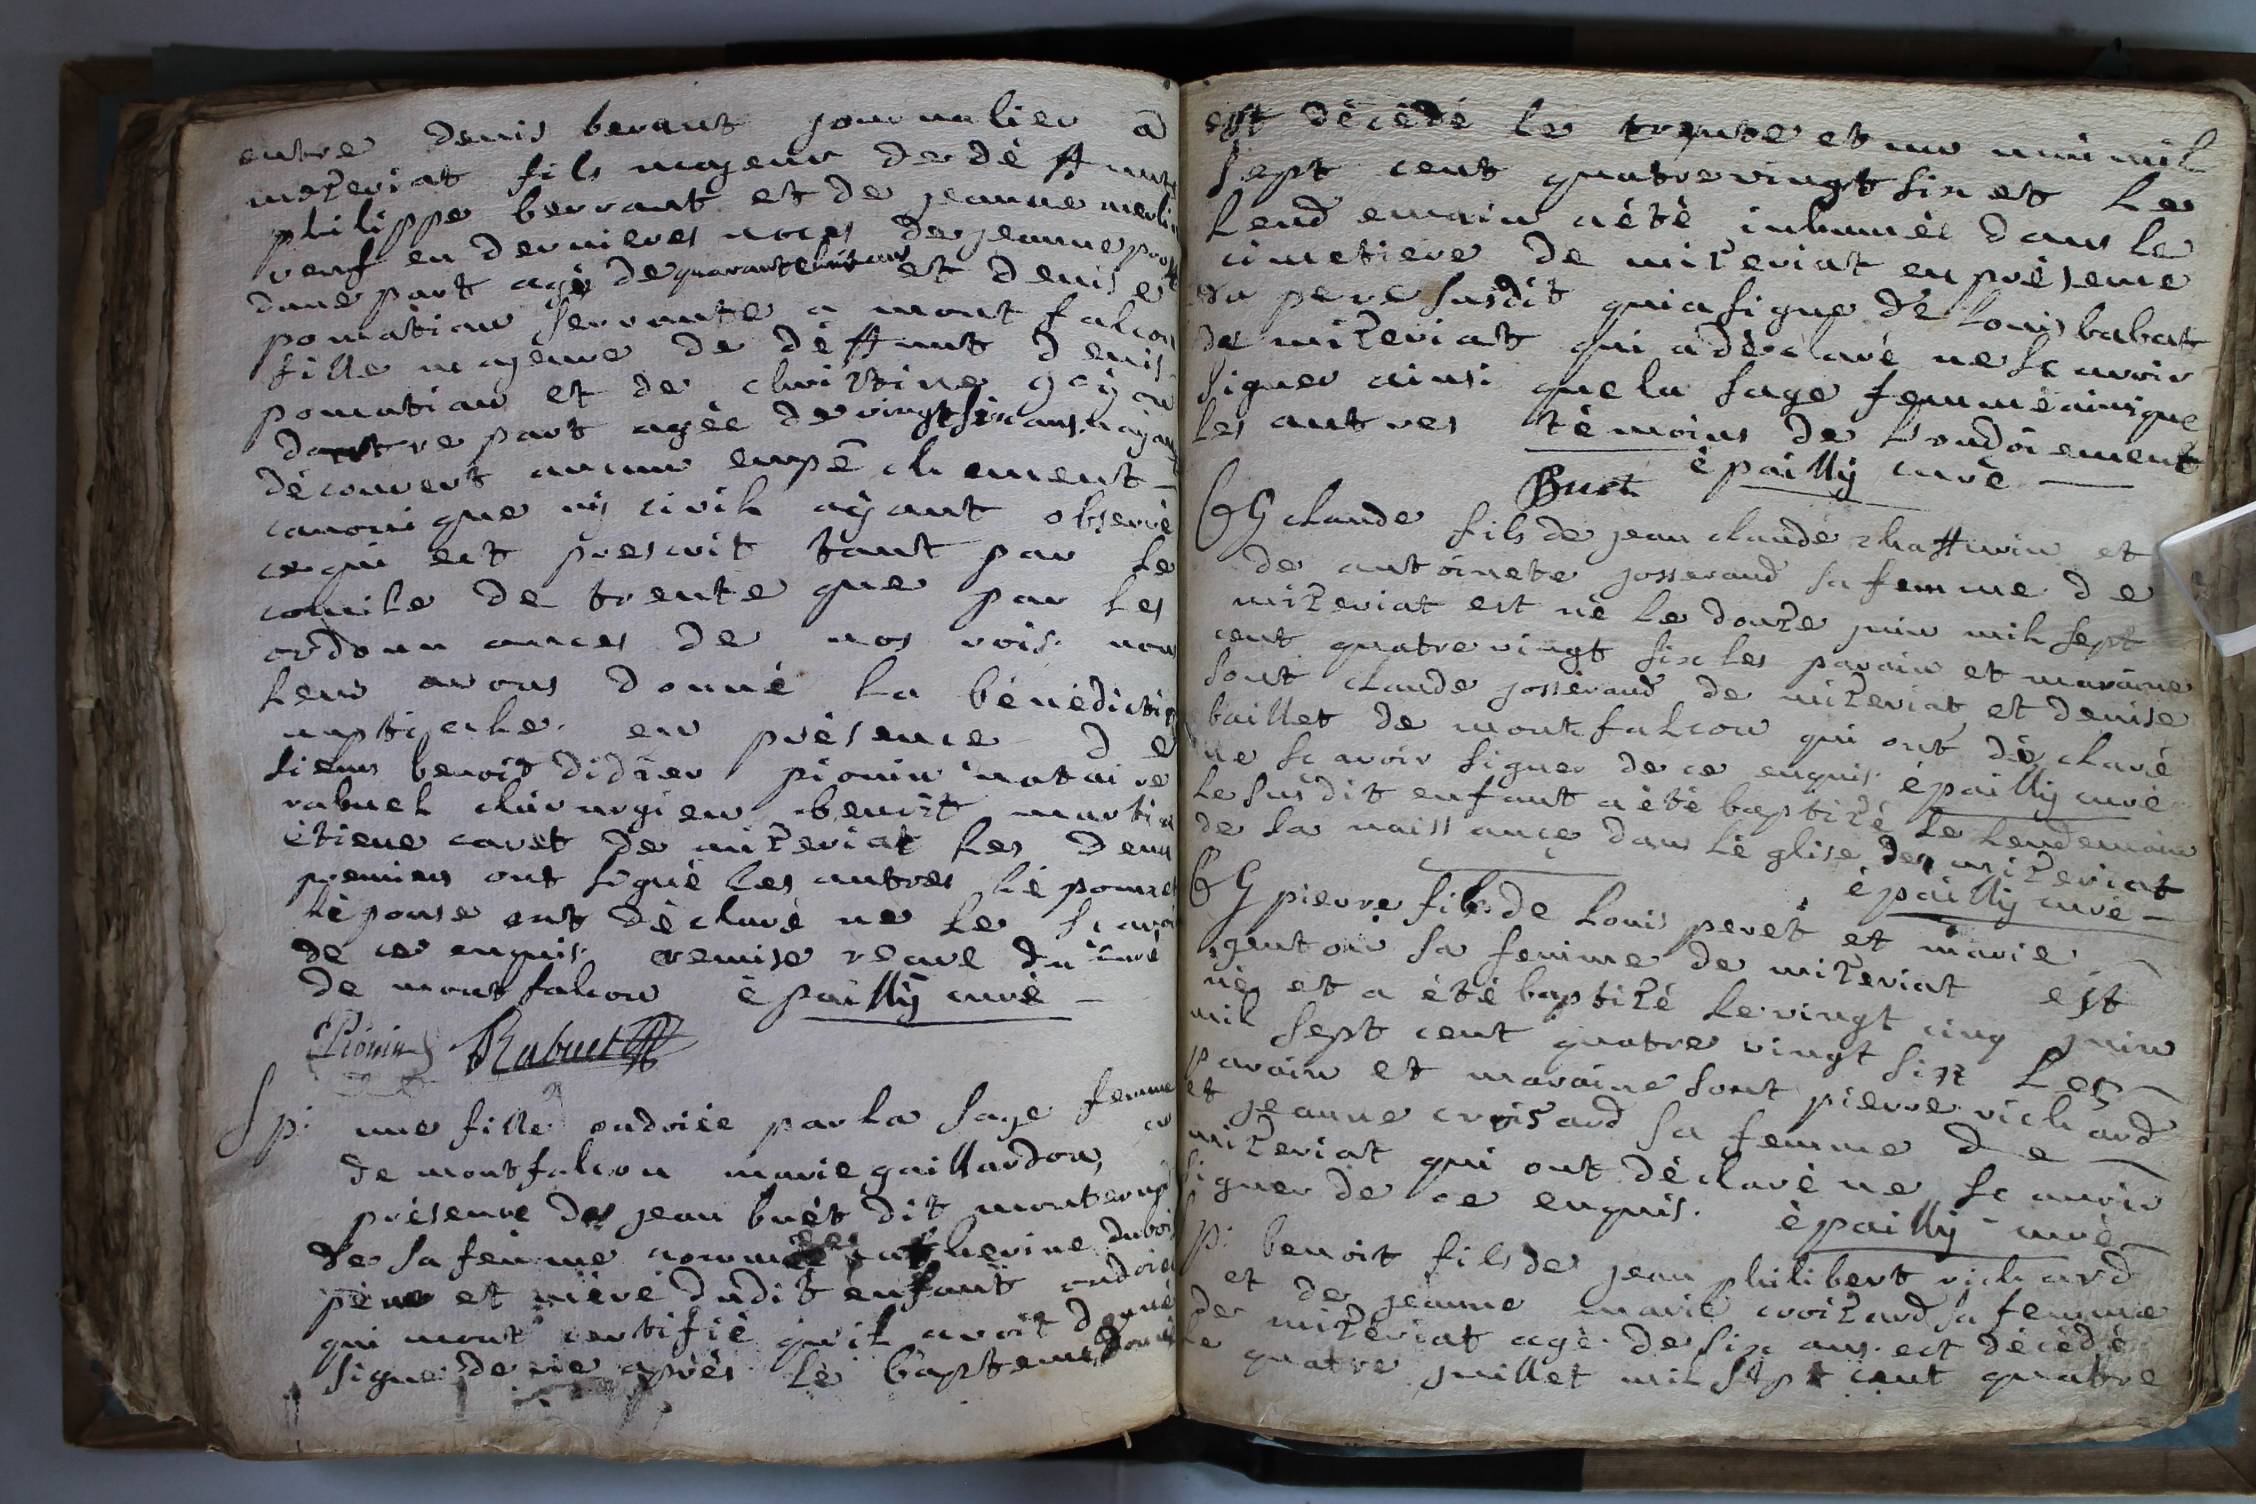 entre denis berant journalier a
mizeriat fils majeur de déffunt
philippe berrant et de jeanne merli
veuf en dernieres noces de jeanne
dune part agé de quarante huit ans et denise
pomatian servante a mont falcon
fille majeure de deffunt denis
pomatian et de christine
dautre part agée de vingt six ans nayant
découvert aucun empéchement
canonique ny civil ayant observé
ce qui est prescrit tant par le
concile de trente que par les
ordonnances de nos rois nous
leur avons donné la bénédiction
nuptiale en présence de
sieurs benoit didier pionin notaire
rabuel chirurgien benoit martin
étiene caret de mizeriat les deux
premiers ont signé les autres lé poux et
léponse ont déclaré ne le scavoi
de ce enquis remise du curé
de montfalcon épailly curé
Pionin Rabuel
Sp. une fille ondoiée par la sage femme
de montfalcon marie gaillardon en
présence de jean buét dit
de sa femme nommée catherine dubois
pére et mére dudit enfant ondoié
qui mont certifié qu'il avoit donné
signe de vie aprés le baptême donné
est décédé le trente et un mai mil
sept cent quatre vingt six et le
lendemain a été inhumée dans le
cimetiere de mizeriat en présence
du pere susdit qui a signé de louis babat
de mizeriat qui a déclaré ne scavoir
signer ainsi que la sage femme ainsi que
les autres témoins de l'ondoiement
Buet épailly curé
claude fils de jean claude chaffurin et
de antoinete josserand sa femme de
mizeriat est né le douze juin mil sept
cent quatre vingt six les parain et maraine
sont claude josserand de mizeriat et denise
baillet de montfalcon qui ont déclaré
ne scavoir signer de ce enquis épailly curé
le susdit enfant a été baptizé le lendemain
de sa naissance dans l'é glise de mizeriat
épailly curé
pierre fils de louis peret et marie
sa femme de mizeriat est
né et a été baptizé le vingt cinq juin
mil sept cent quatre vingt six les
parain et maraine sont pierre richard
et jeanne croisard sa femme de
mizeriat qui ont déclaré ne scavoir
signer de ce enquis. épailly curé
Sp. benoit fils de jean philibert richard
et de jeanne marie croizard sa femme
de mizeriat agé de six ans est décédé
le quatre juillet mil sept cent quatre